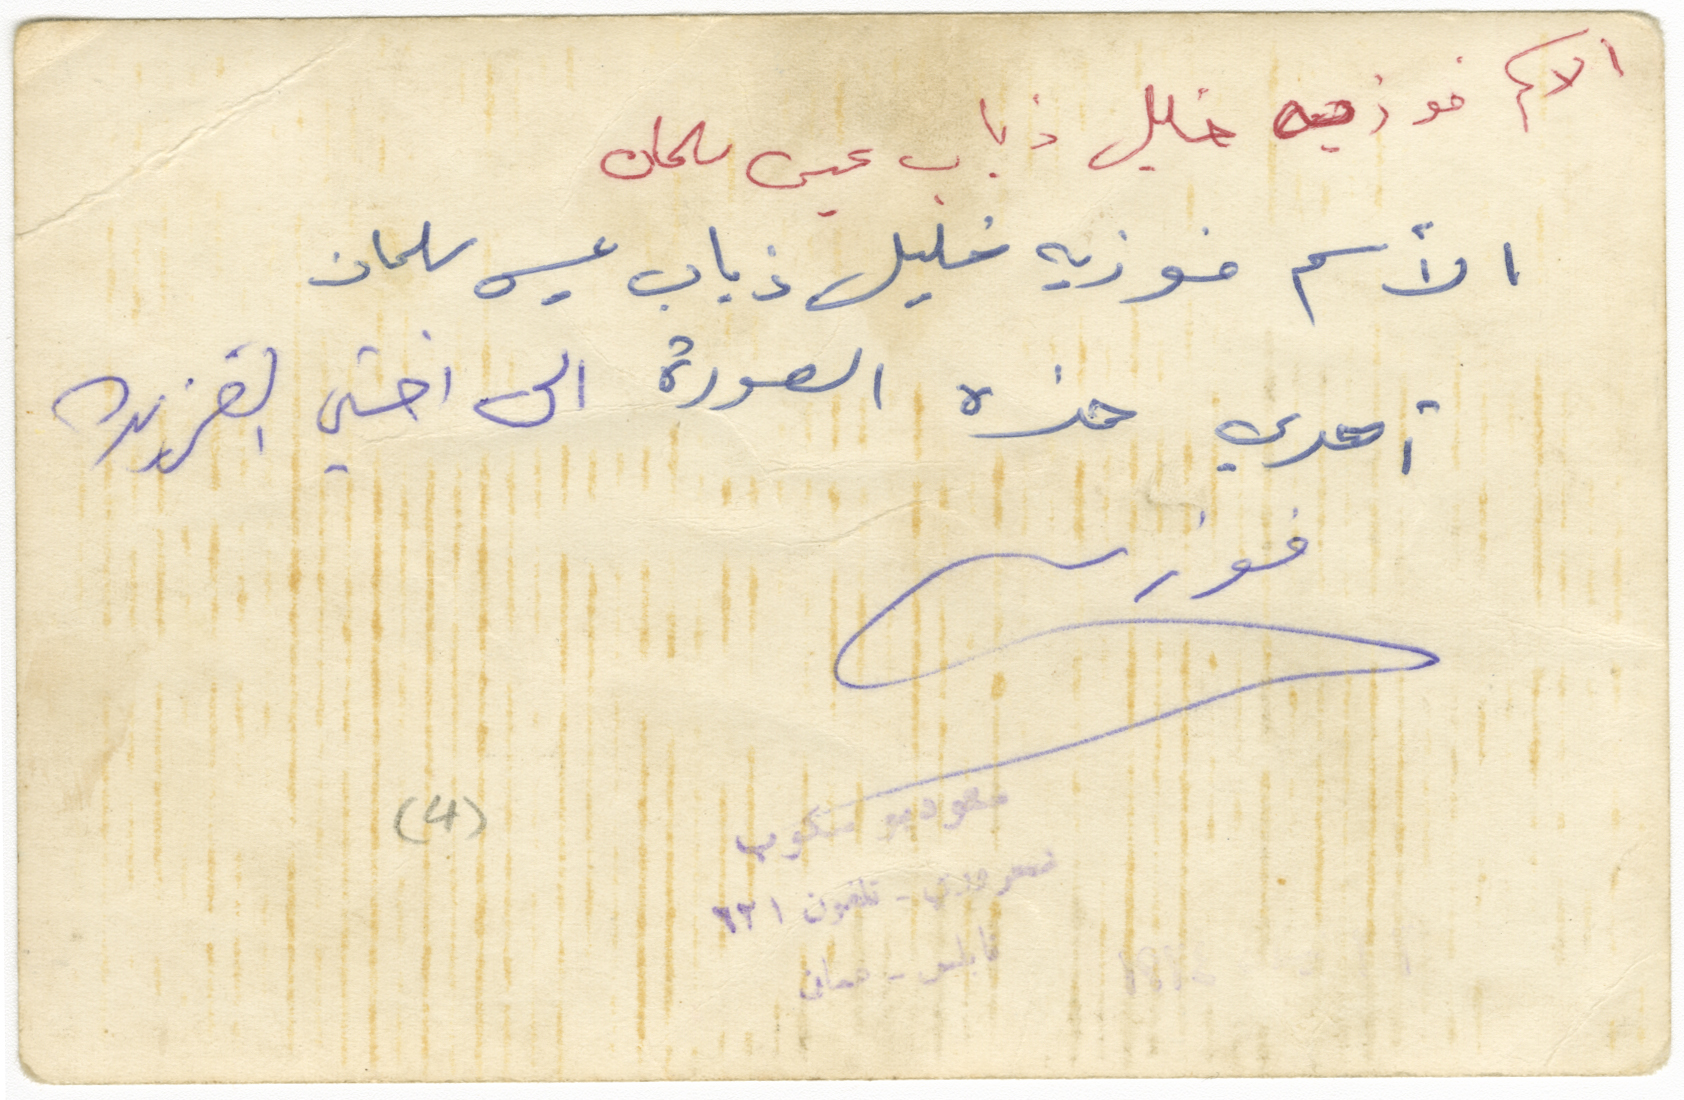 الاسم فوزيه خليل ذياب عيسى سلمان
الأسم فوزيه خليل ذياب عيسى سلمان
أهدي هذه الصورة الى اختي العزيزة
فوزيه
(4)
ستوديو سكوب
تلفون ٦٢١
نابلس - عمان